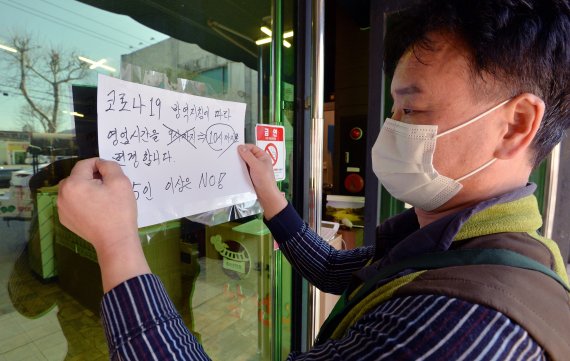 코로나19 방역지침에 따라
영업시간을 9시까지 ⇒ 10시까지
변경합니다.
5인 이상은 NO!
금연